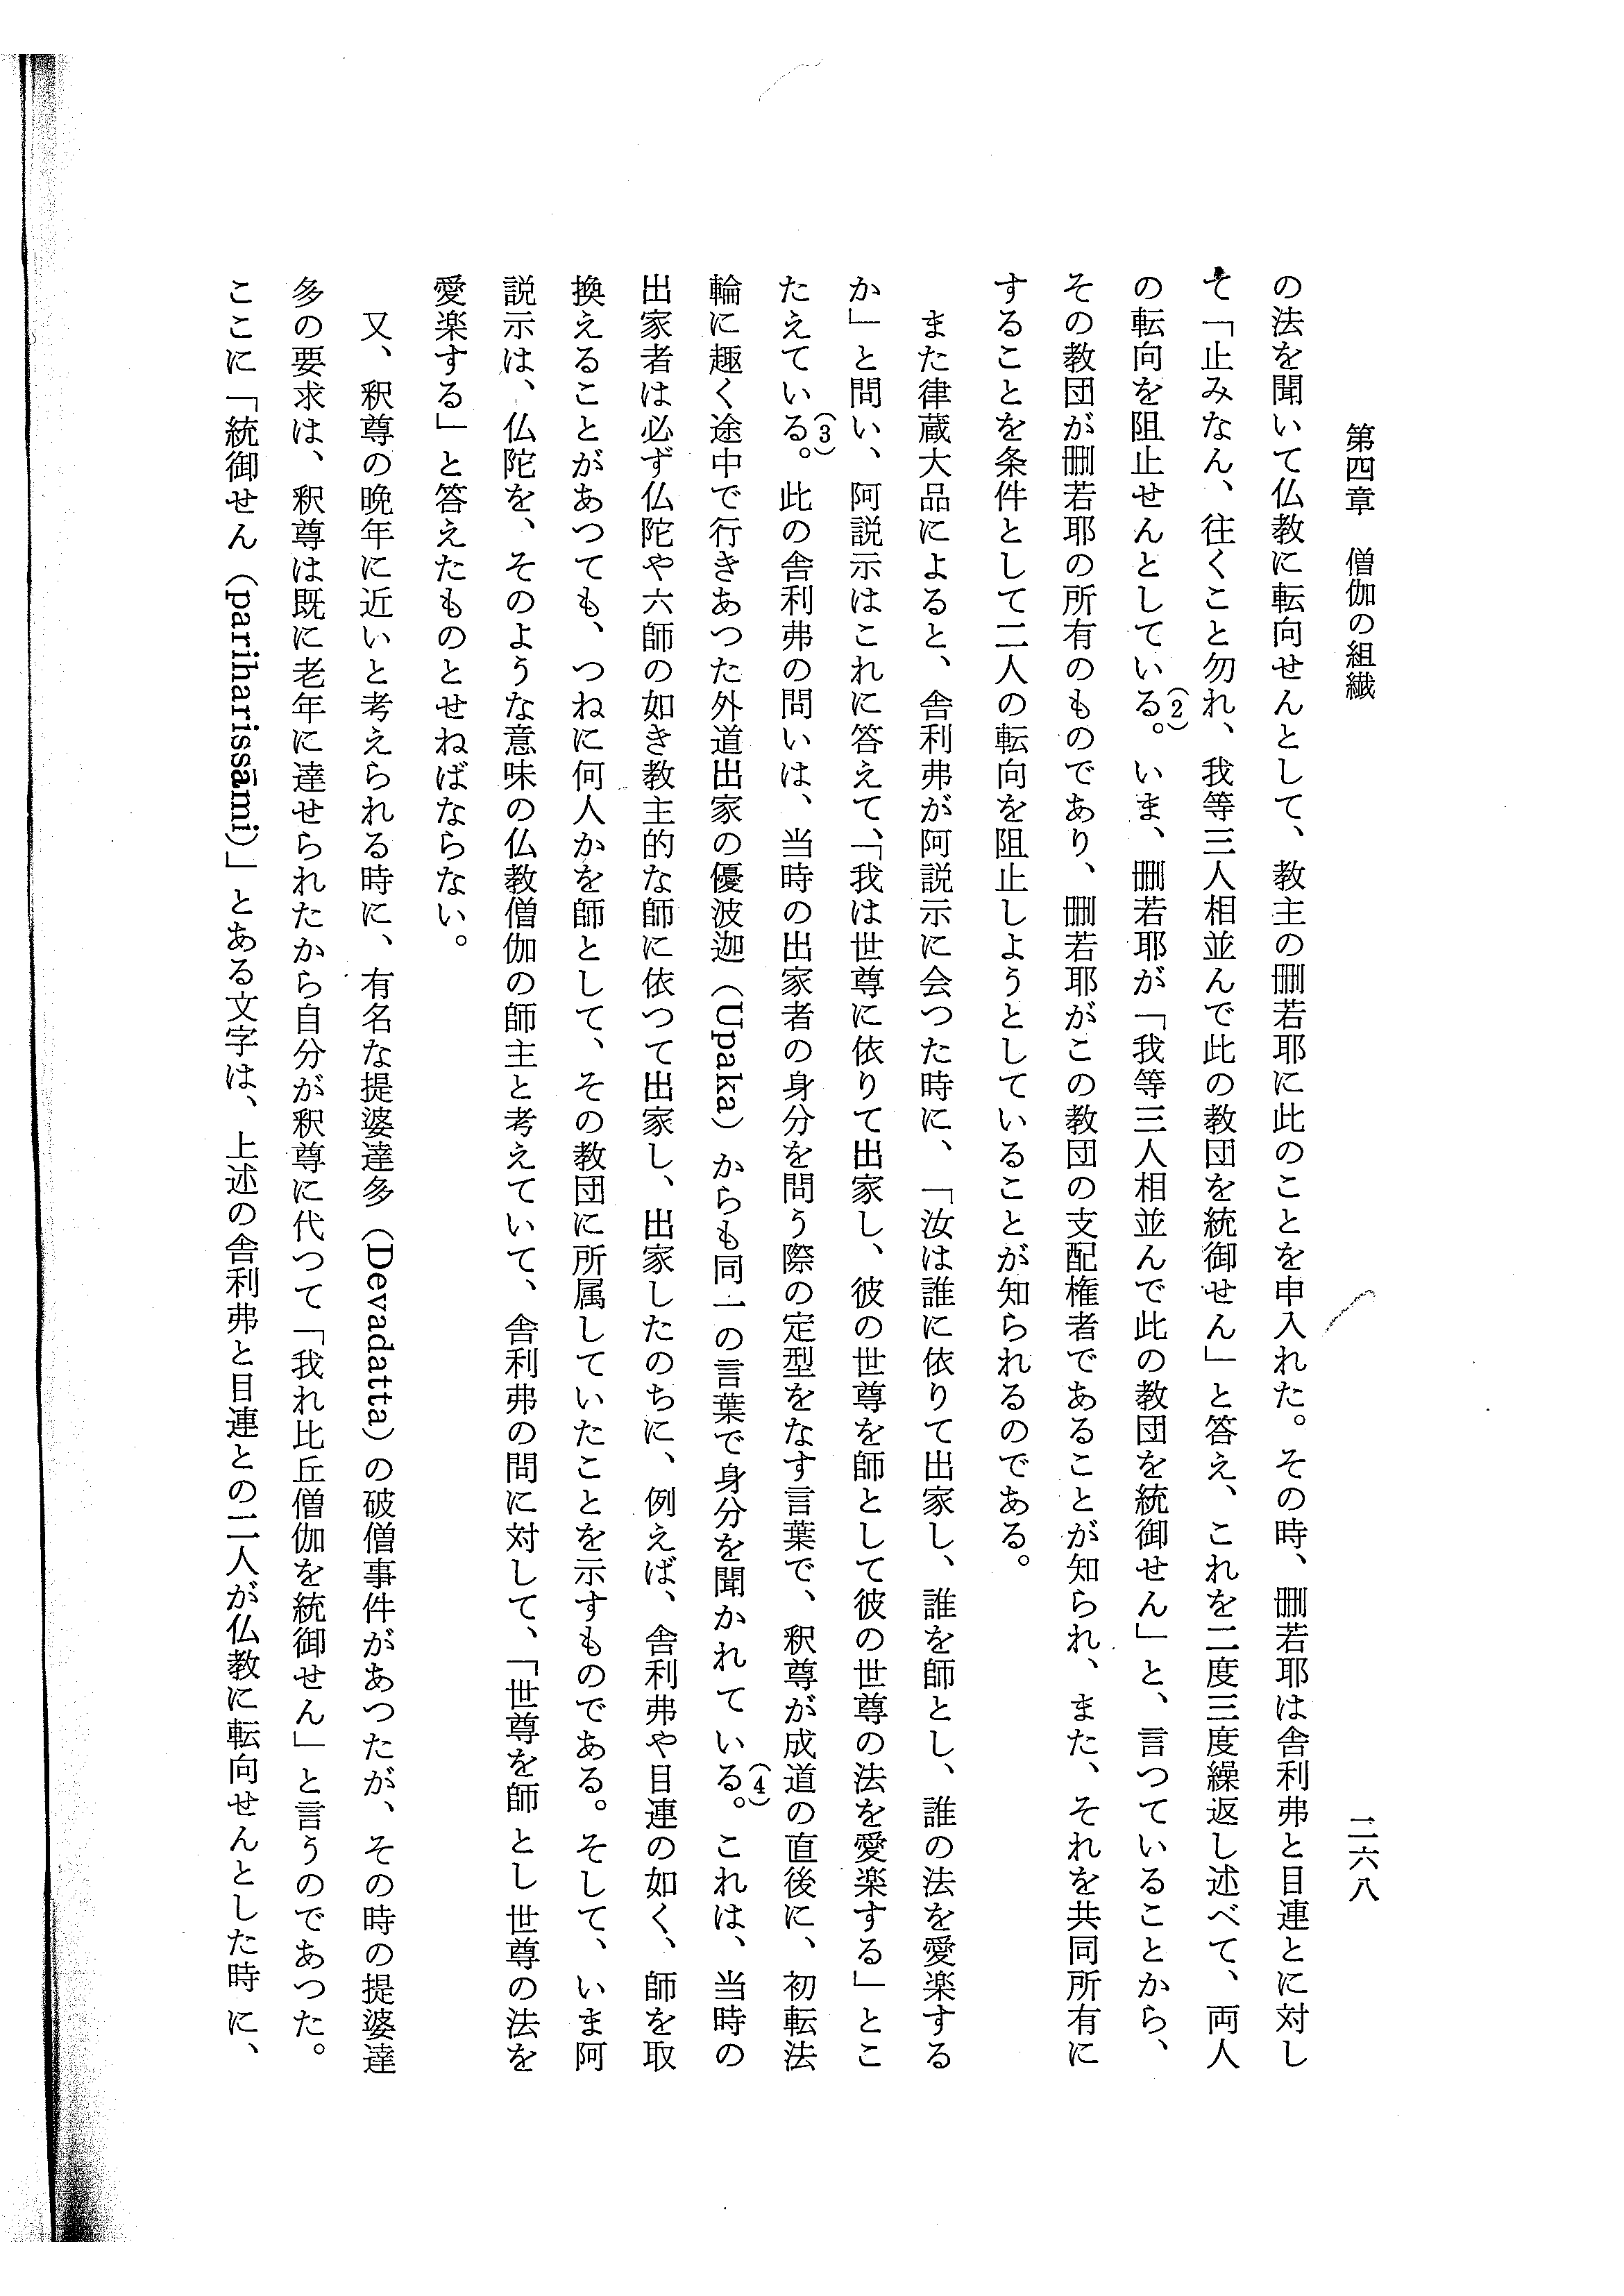 第四章　僧伽の組織
二六八
の法を聞いて仏教に転向せんとして、教主の刪若耶に此のことを申入れた。その時、刪若耶は舎利弗と目連とに対し
て「止みなん、往くこと勿れ、我等三人相並んで此の教団を統御せん」と答え、これを二度三度繰返し述べて、両人
の転向を阻止せんとしている。(2)いま、刪若耶が「我等三人相並んで此の教団を統御せん」と、言つていることから、
その教団が刪若耶の所有のものであり、刪若耶がこの教団の支配権者であることが知られ、また、それを共同所有に
することを条件として二人の転向を阻止しようとしていることが知られるのである。
　また律蔵大品によると、舎利弗が阿説示に会つた時に、「汝は誰に依りて出家し、誰を師とし、誰の法を愛楽する
か」と問い、阿説示はこれに答えて、「我は世尊に依りて出家し、彼の世尊を師として彼の世尊の法を愛楽する」とこ
たえている。(3)此の舎利弗の問いは、当時の出家者の身分を問う際の定型をなす言葉で、釈尊が成道の直後に、初転法
輪に趣く途中で行きあつた外道出家の優波迦（Upaka）からも同一の言葉で身分を聞かれている。(4)これは、当時の
出家者は必ず仏陀や六師の如き教主的な師に依つて出家し、出家したのちに、例えば、舎利弗や目連の如く、師を取
換えることがあつても、つねに何人かを師として、その教団に所属していたことを示すものである。そして、いま阿
説示は、仏陀を、そのような意味の仏教僧伽の師主と考えていて、舎利弗の問に対して、「世尊を師とし世尊の法を
愛楽する」と答えたものとせねばならない。
　又、釈尊の晩年に近いと考えられる時に、有名な提婆達多（Devadatta）の破僧事件があつたが、その時の提婆達
多の要求は、釈尊は既に老年に達せられたから自分が釈尊に代つて「我れ比丘僧伽を統御せん」と言うのであつた。
ここに「統御せん（pariharissāmi）」とある文字は、上述の舎利弗と目連との二人が仏教に転向せんとした時に、